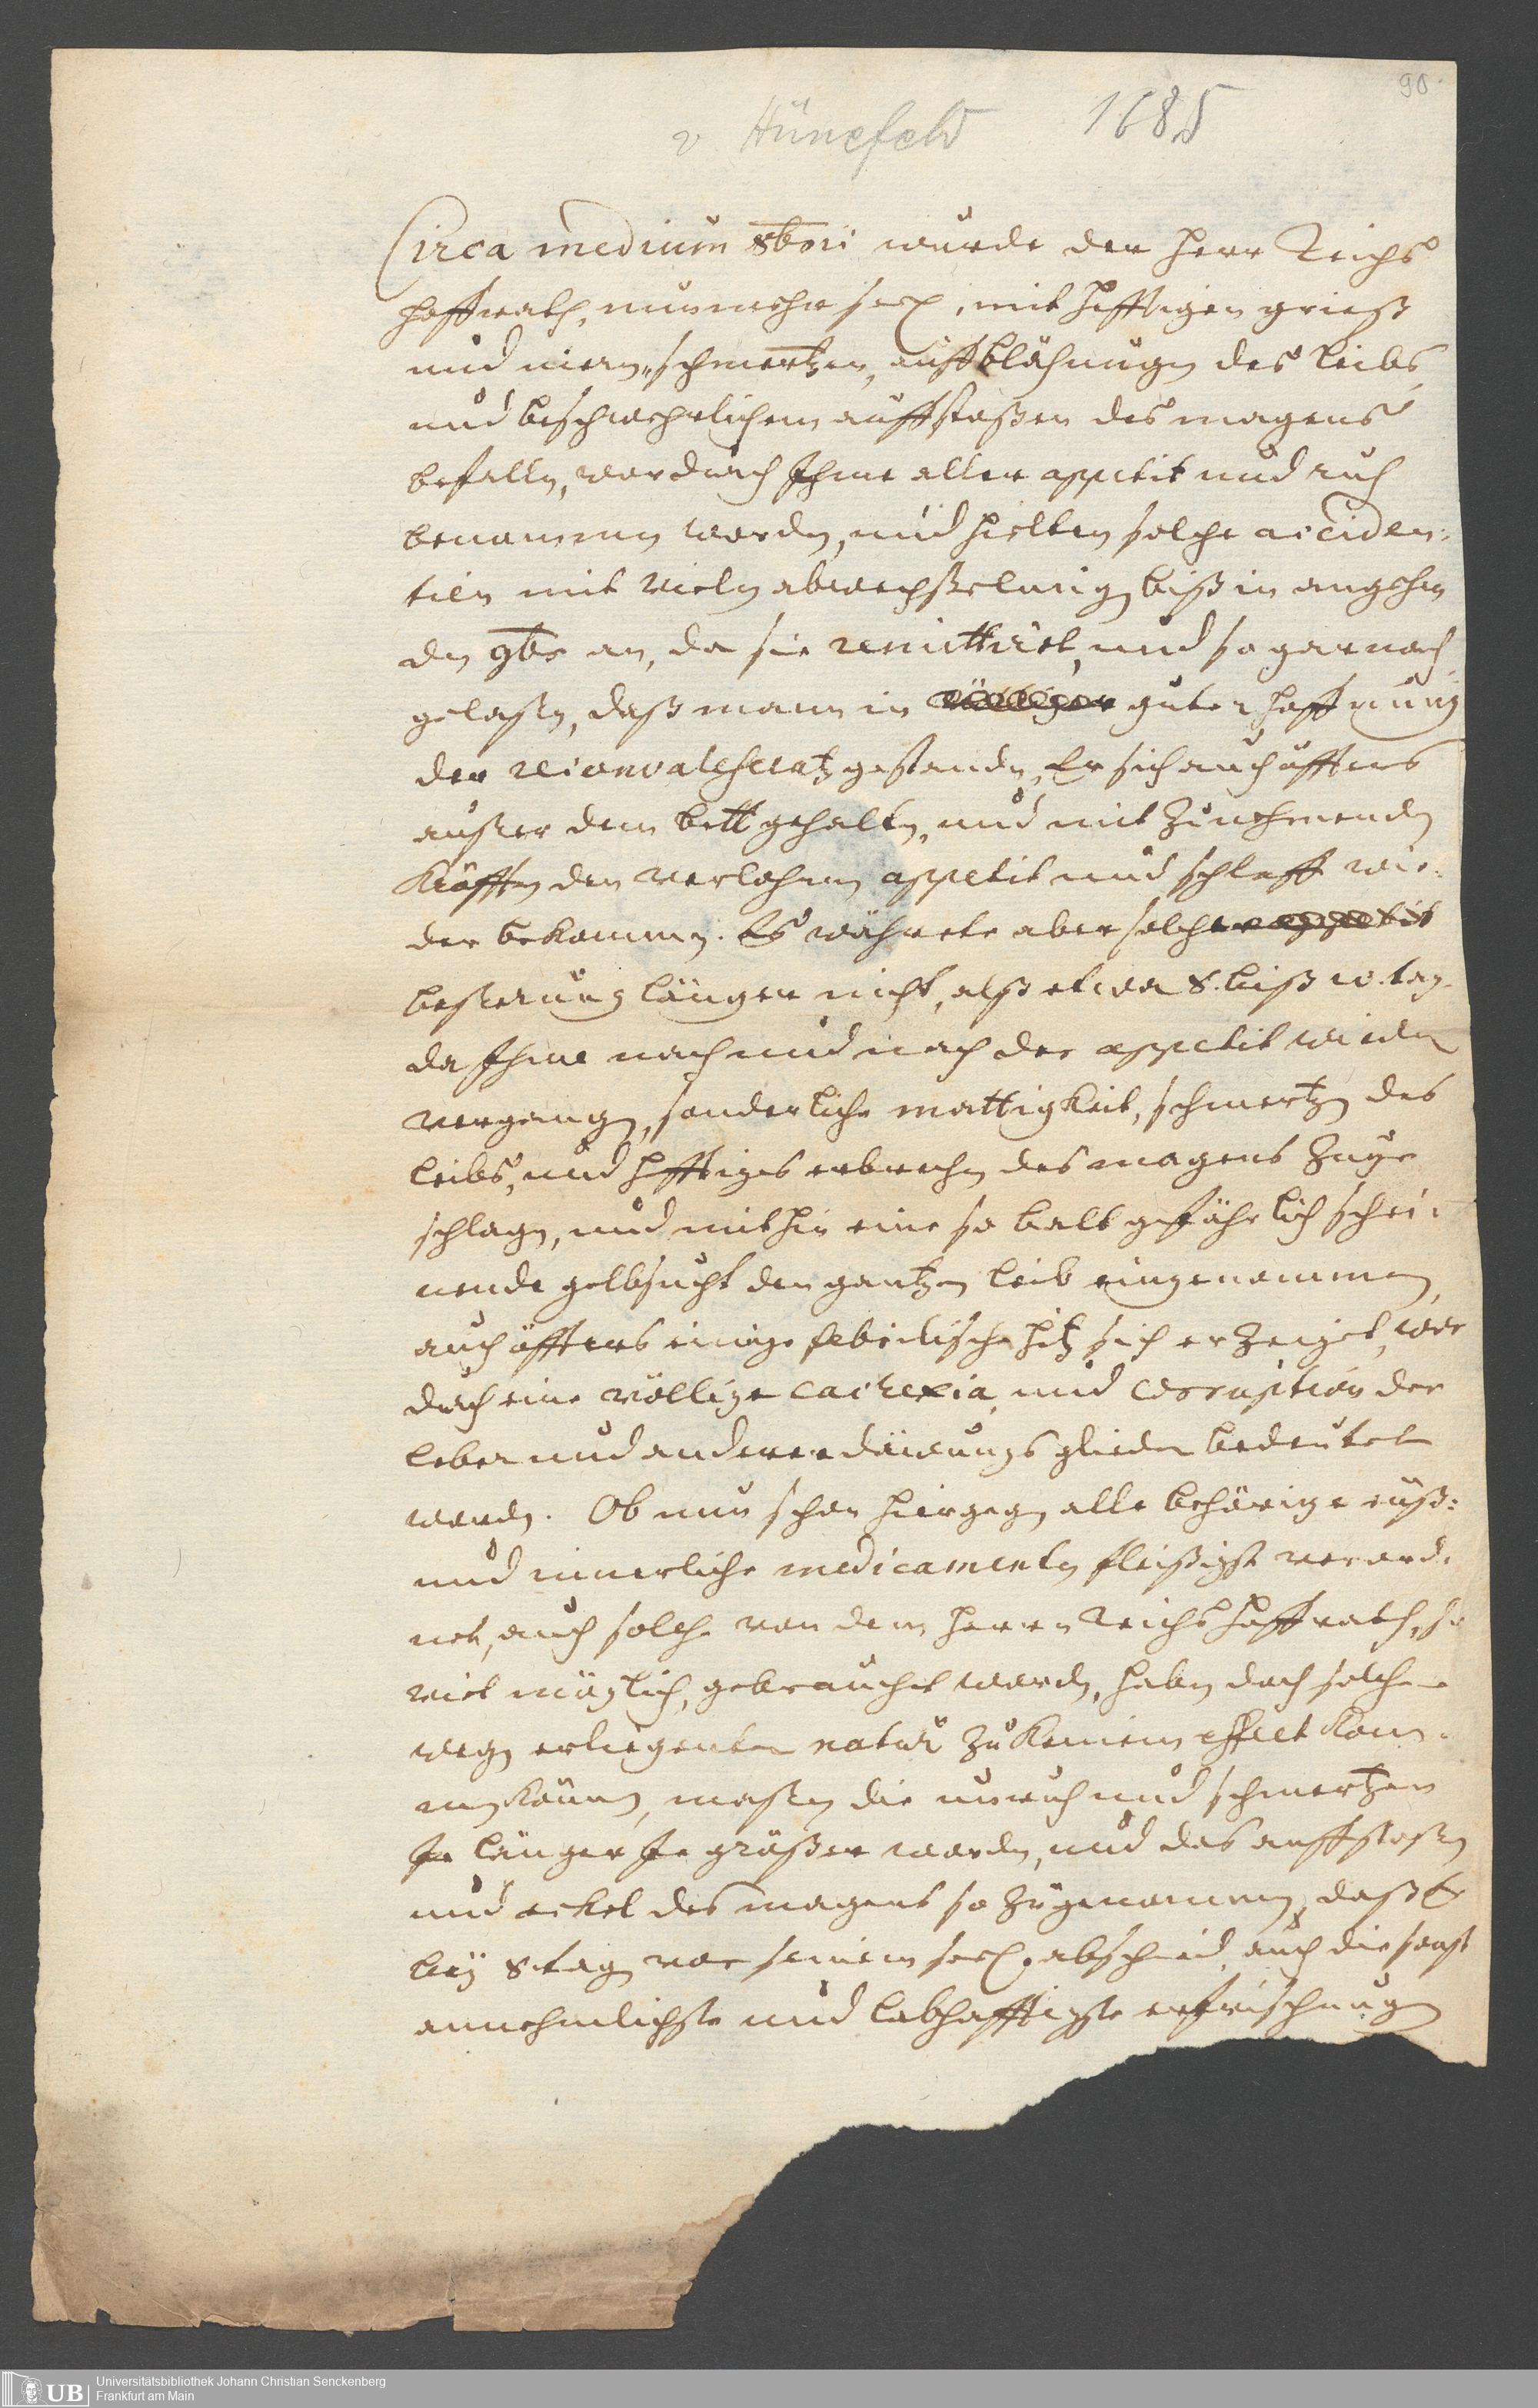 90
v Hünefeld 1685
Circa medium 8bris wurde der Herr Reichs
Hoffrath, nunmehr seel., mit hefftigen grieß
und niern„schmertzen, auffblähungen des leibs,
und beschwehrlichem auffstoßen des magens
befallen, wordurch Ihme aller appetit und ruh
benommen worden, und hielten solche acciden:
tien mit vielen abwechßelungen biß in angehen
den 9br an, da sie remittiret, und so gar nach
gelaßen, daß mann in völliger guter hoffnung
der reconvalescentz gestanden, Er sich auch öffters
außer dem bett gehalten, und mit zunehmenden
Kräfften den verlohrnen appetit und schlaff wie:
der bekommen. Es währete aber solcher appetit
beßerung länger nicht, alß etwa 8. biß 10. tag.
da Ihme nach und nach der appetit wieder
vergangen, sonderliche mattigkeit, schmertzen des
leibs, und hefftiges erbrechen des magens zuge
schlagen, und mithin eine so balt gefährlich schei:
nende gelbsucht den gantzen leib eingenommen,
auch öffters einige febrilische hitz sich erzeiget, wor
durch eine völlige cachexia, und corruption der
leber und anderer däuungs glieder bedeutet
worden. Ob nun schon hiergegen alle behörige euß:
und innerliche medicamenten fleißigst verord:
net, auch solche von dem Herrn Reichs Hoffrath, so
viel möglich, gebrauchet worden, haben doch solche
wegen erliegenter natur zu keinem effect kom:
men können, maßen die unruh und schmertzen
Je länger Je größer worden, und das auffstoßen
und eckel des magens so zugenommen, daß Er
bey 8 tagen vor seinem seel. abscheid, auch die sonst
annehmlichste und labhafftigste erfrischungen
UB Universitätsbibliothek Johann Christian Senckenberg
Frankfurt am Main